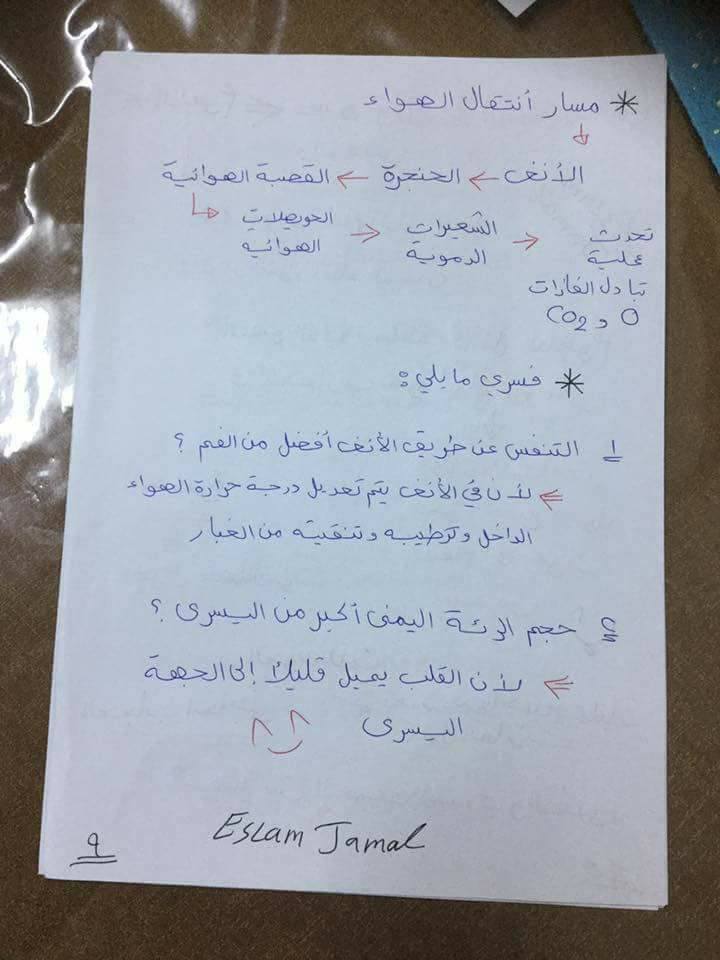 * مسار أنتقال الهواء
↓
الأنف ← الحنجرة ← القصبة الهوائية
↳ الحويصلات الهوائيه → الشعيرات الدموية → تحدث عملية تبادل الغازات O و CO2
* فسري ما يلي :
١ التنفس عن طريق الأنف أفضل من الفم ؟
⇐ لأن في الأنف يتم تعديل درجة حرارة الهواء
الداخل وترطيبه وتنقيته من الغبار
٢ حجم الرئة اليمنى أكبر من اليسرى ؟
⇐ لأن القلب يميل قليلاً إلى الجهة
اليسرى ^‿^
Eslam Jamal
٩